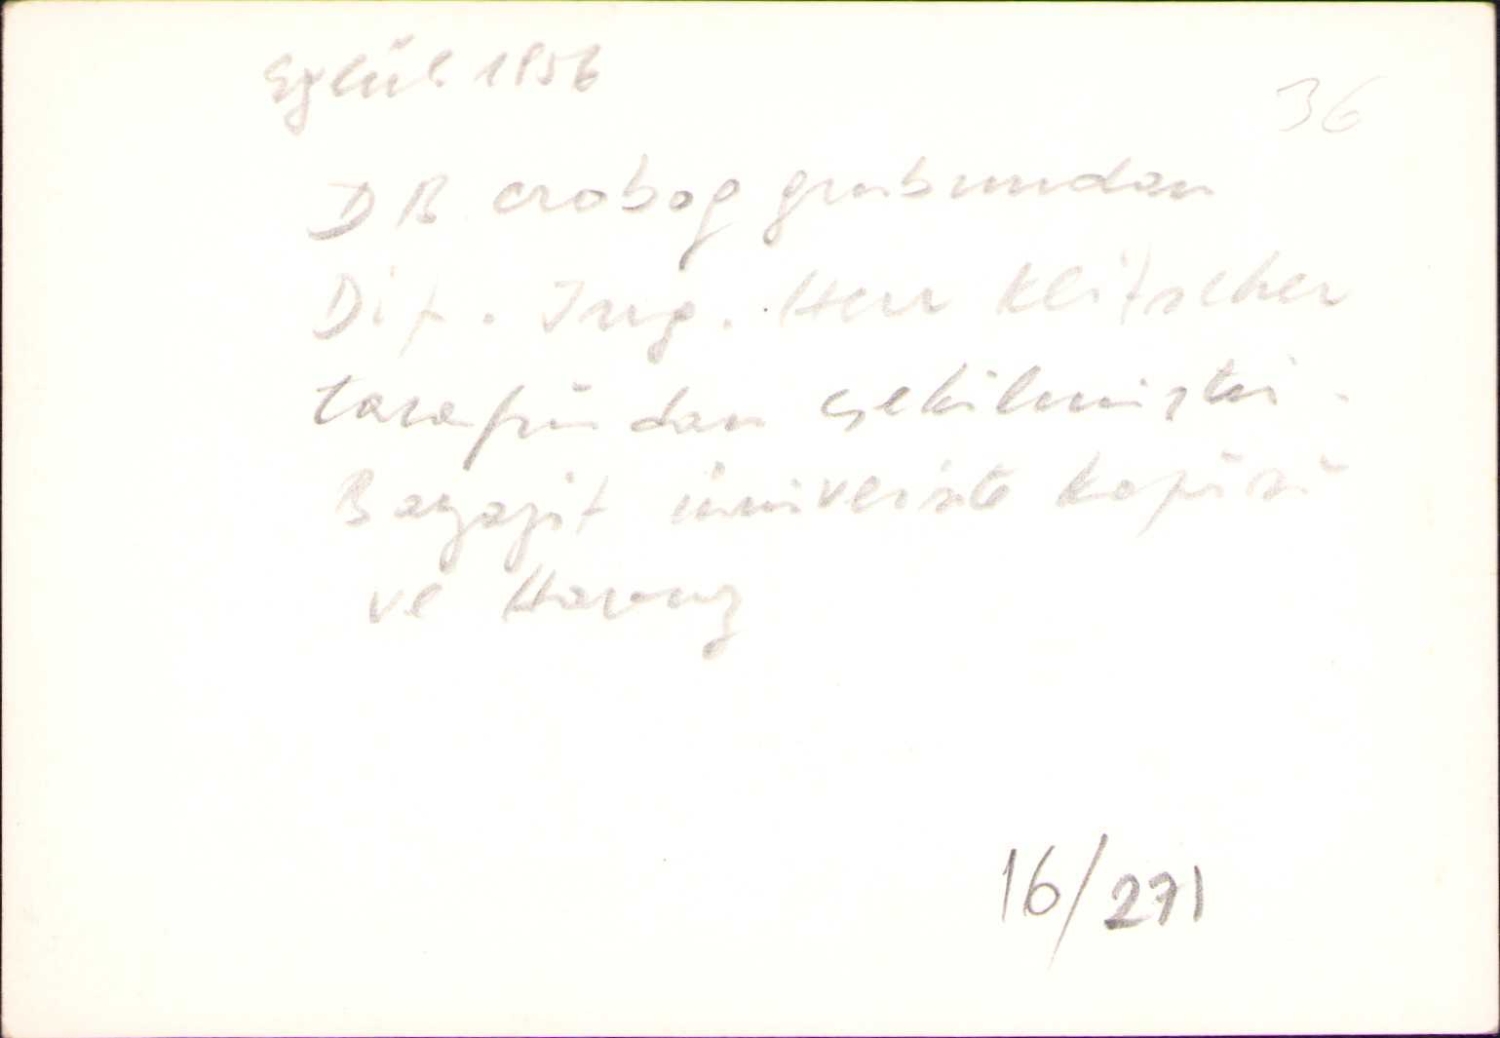 Eylül 1956
36
DB grubundan
Dip. Ing. Herr Klitscher
tarafından çekilmiştir.
Bayazit üniversite kapısı
ve Havuz
16/271